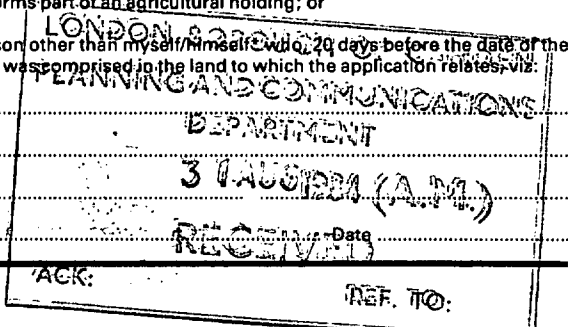 forms part of an agricultural holding; or
LONDON BOROUGH OF CAMDEN
son other than myself/himself who, 20 days before the date of the
was comprised in the land to which the application relates, viz:
PLANNING AND COMMUNICATIONS
DEPARTMENT
31 AUG 1984 (A.M.)
RECEIVED
Date
ACK:
REF. TO: